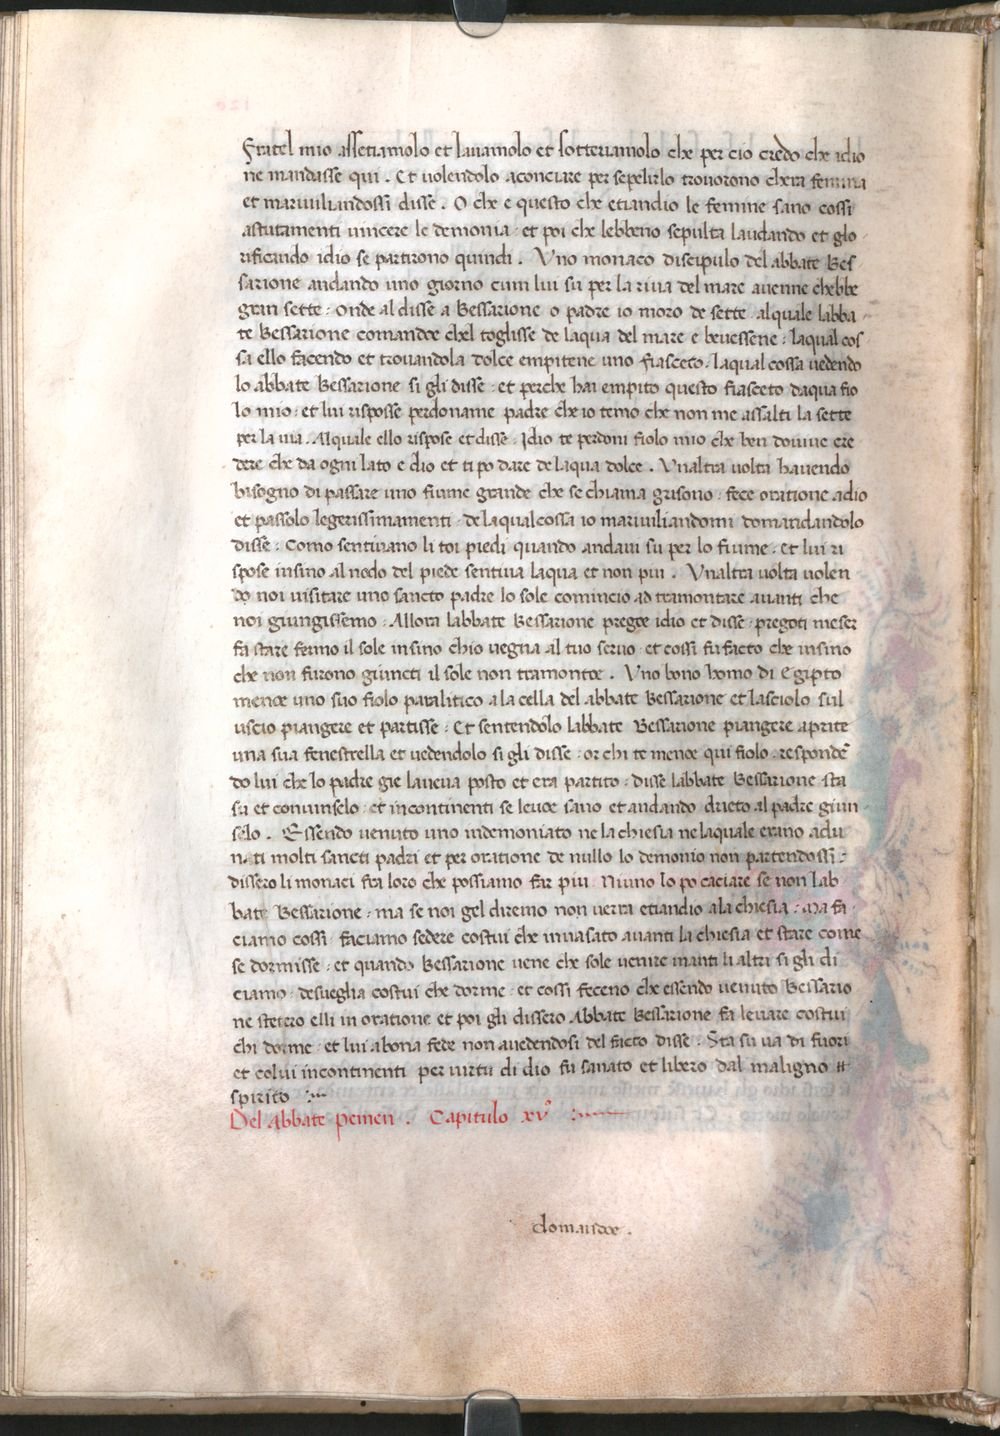 Fratel mio assettamolo et lauamolo et sotteriamolo che per cio credo che idio
ne mandasse qui . Et uolendolo aconciare per sepelirlo trouorono chera femina
et marauiliandossi disse . O che e questo che etiandio le femine sano cossi
astutamenti uincere le demonia · et poi che lebbeno sepulta laudando et glo
rificando idio se partirono quindi . Vno monaco discipulo del abbate Bes
sarione andando uno giorno cum lui su per la riua del mare auenne chebbe
gran sette · onde al disse a Bessarione o padre io moro de sette · al quale labba
te Bessarione comandoe chel toglisse de laqua del mare e beuessene · laqual cos
sa ello facendo et trouandola dolce empitene uno fiasceto · laqual cossa uedendo
lo abbate Bessarione si gli disse · et perche hai empito questo fiasceto daqua fio
lo mio · et lui risposse perdoname padre che io temo che non me assalti la sette
per la uia . Al quale ello rispose et disse · Idio te perdoni fiolo mio che ben douiue cre
dere che da ogni lato e dio et ti po dare de laqua dolce . Vnaltra uolta hauendo
bisogno di passare uno fiume grande che se chiama grisono · fece oratione adio
et passolo legerissimamenti · de la qual cossa io marauiliandomi domandandolo
disse · Como sentiuano li toi piedi quando andaui su per lo fiume · et lui ri
spose insino al nodo del piede sentiua laqua et non piu . Vnaltra uolta uolen
do noi uisitare uno sancto padre lo sole comincio ad tramontare auanti che
noi giungissemo · Allora labbate Bessarione pregoe idio et disse · pregoti meser
fa stare fermo il sole insino chio uegna al tuo seruo · et cossi fu facto che insino
che non furono giuncti il sole non tramontoe . Vno bono homo di Egipto
menoe uno suo fiolo paralitico a la cella del abbate Bessarione et lasciolo sul
uscio piangere et partisse · Et sentendolo labbate Bessarione piangere aprite
una sua fenestrella et uedendolo si gli disse · or chi te menoe qui fiolo · responde͂
do lui che lo padre gie laueua posto et era partito · disse labbate Bessarione sta
su et conuinselo · et incontinenti se leuoe sano et andando drieto al padre giun
selo . Essendo uenuto uno indemoniato ne la chiesia ne laquale erano adu
nati molti sancti padri et per oratione de nullo lo demonio non partendossi ·
dissero li monaci fra loro che possiamo far piu · Niuno lo po caciare se non lab
bate Bessarione · ma se noi gel diremo non uerra etiandio a la chiesia · Ma fa
ciamo cossi · faciamo sedere costui che inuasato auanti la chiesia et stare come
se dormisse · et quando Bessarione uene che sole uenire inanti li altri si gli di
ciamo · desueglia costui che dorme · et cossi feceno che essendo uenuto Bessario
ne stetero elli in oratione et poi gli dissero Abbate Bessarione fa leuare costui
chi dorme · et lui a bona fede non auedendosi del facto disse · Sta su ua di fuori
et colui incontinenti per uirtu di dio fu sanato et libero dal maligno
spirito
Del Abbate Pemen . Capitulo xv°
domandoe .